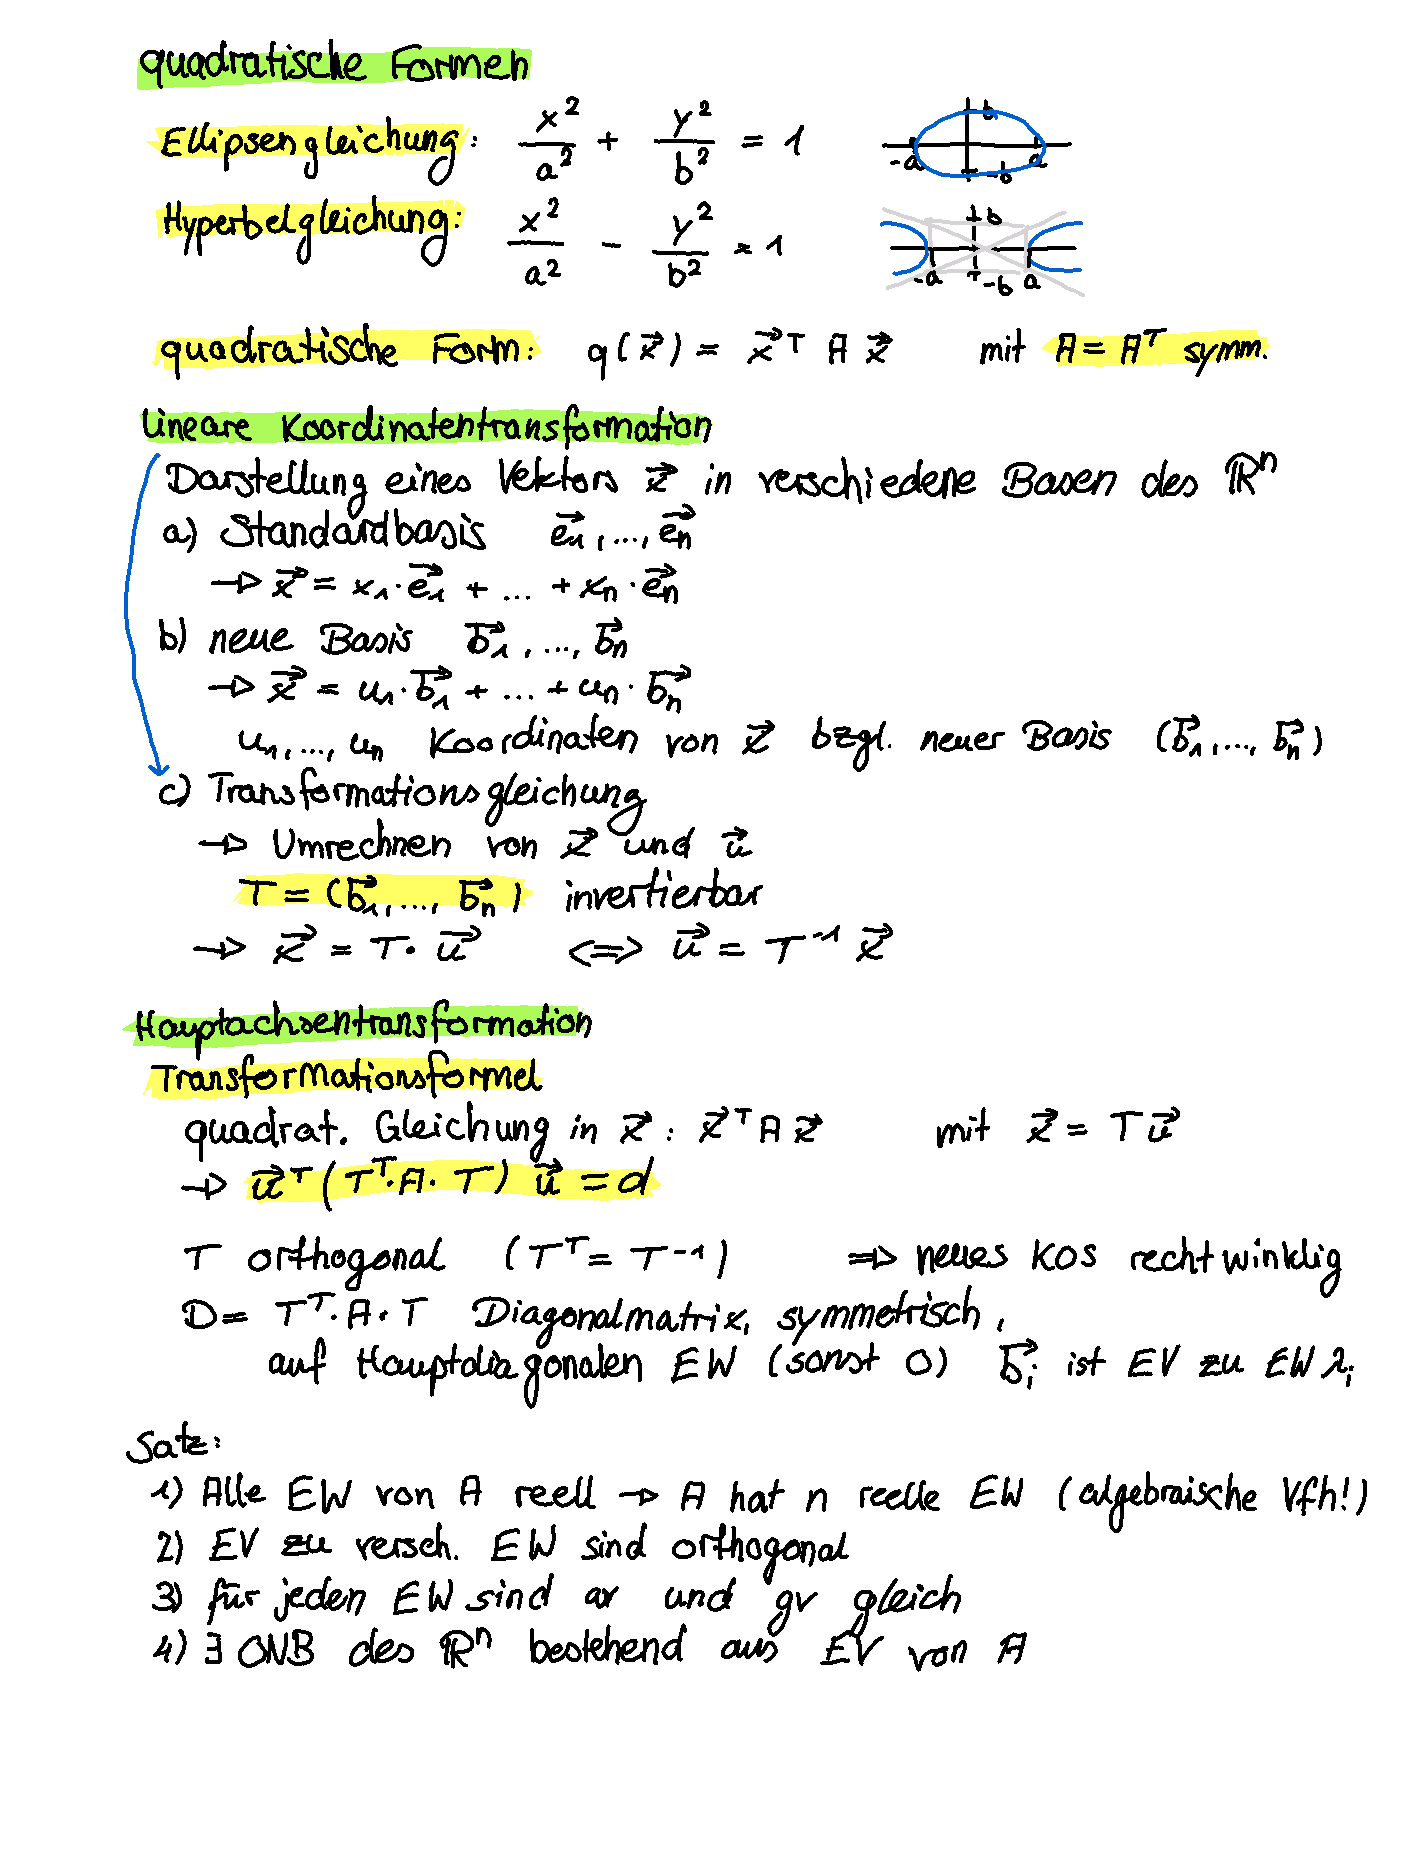 quadratische Formen
Ellipsengleichung: x²/a² + y²/b² = 1
b -a a -b
Hyperbelgleichung: x²/a² - y²/b² = 1
b -a -b a
quadratische Form: q(x⃗) = x⃗ᵀ A x⃗ mit A = Aᵀ symm.
lineare Koordinatentransformation
Darstellung eines Vektors x⃗ in verschiedene Basen des ℝⁿ
a) Standardbasis e⃗₁, ..., e⃗ₙ
→ x⃗ = x₁·e⃗₁ + ... + xₙ·e⃗ₙ
b) neue Basis b⃗₁, ..., b⃗ₙ
→ x⃗ = u₁·b⃗₁ + ... + uₙ·b⃗ₙ
u₁, ..., uₙ Koordinaten von x⃗ bzgl. neuer Basis (b⃗₁, ..., b⃗ₙ)
c) Transformationsgleichung
→ Umrechnen von x⃗ und u⃗
T = (b⃗₁, ..., b⃗ₙ) invertierbar
→ x⃗ = T·u⃗ <=> u⃗ = T⁻¹ x⃗
Hauptachsentransformation
Transformationsformel
quadrat. Gleichung in x⃗: x⃗ᵀ A x⃗ mit x⃗ = T u⃗
→ u⃗ᵀ (Tᵀ·A·T) u⃗ = d
T orthogonal (Tᵀ = T⁻¹) ⇒ neues KOS rechtwinklig
D = Tᵀ·A·T Diagonalmatrix, symmetrisch,
auf Hauptdiagonalen EW (sonst 0) b⃗ᵢ ist EV zu EW λᵢ
Satz:
1) Alle EW von A reell → A hat n reelle EW (algebraische Vfh!)
2) EV zu versch. EW sind orthogonal
3) für jeden EW sind av und gv gleich
4) ∃ ONB des ℝⁿ bestehend aus EV von A